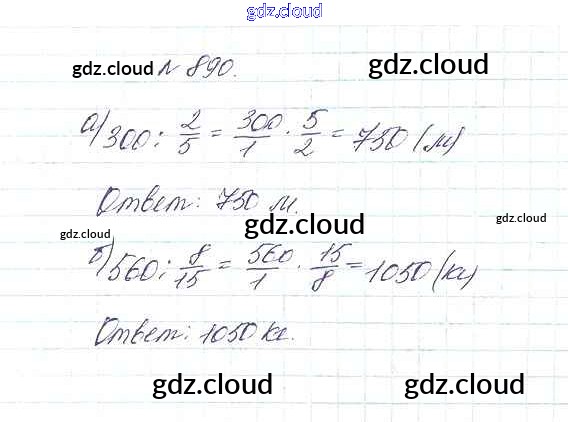 gdz.cloud
gdz.cloud № 890. gdz.cloud
а) 300 : 2/5 = 300/1 · 5/2 = 750 (м)
Ответ: 750 м.
gdz.cloud gdz.cloud gdz.cloud
б) 560 : 8/15 = 560/1 · 15/8 = 1050 (кг)
Ответ: 1050 кг.
gdz.cloud gdz.cloud